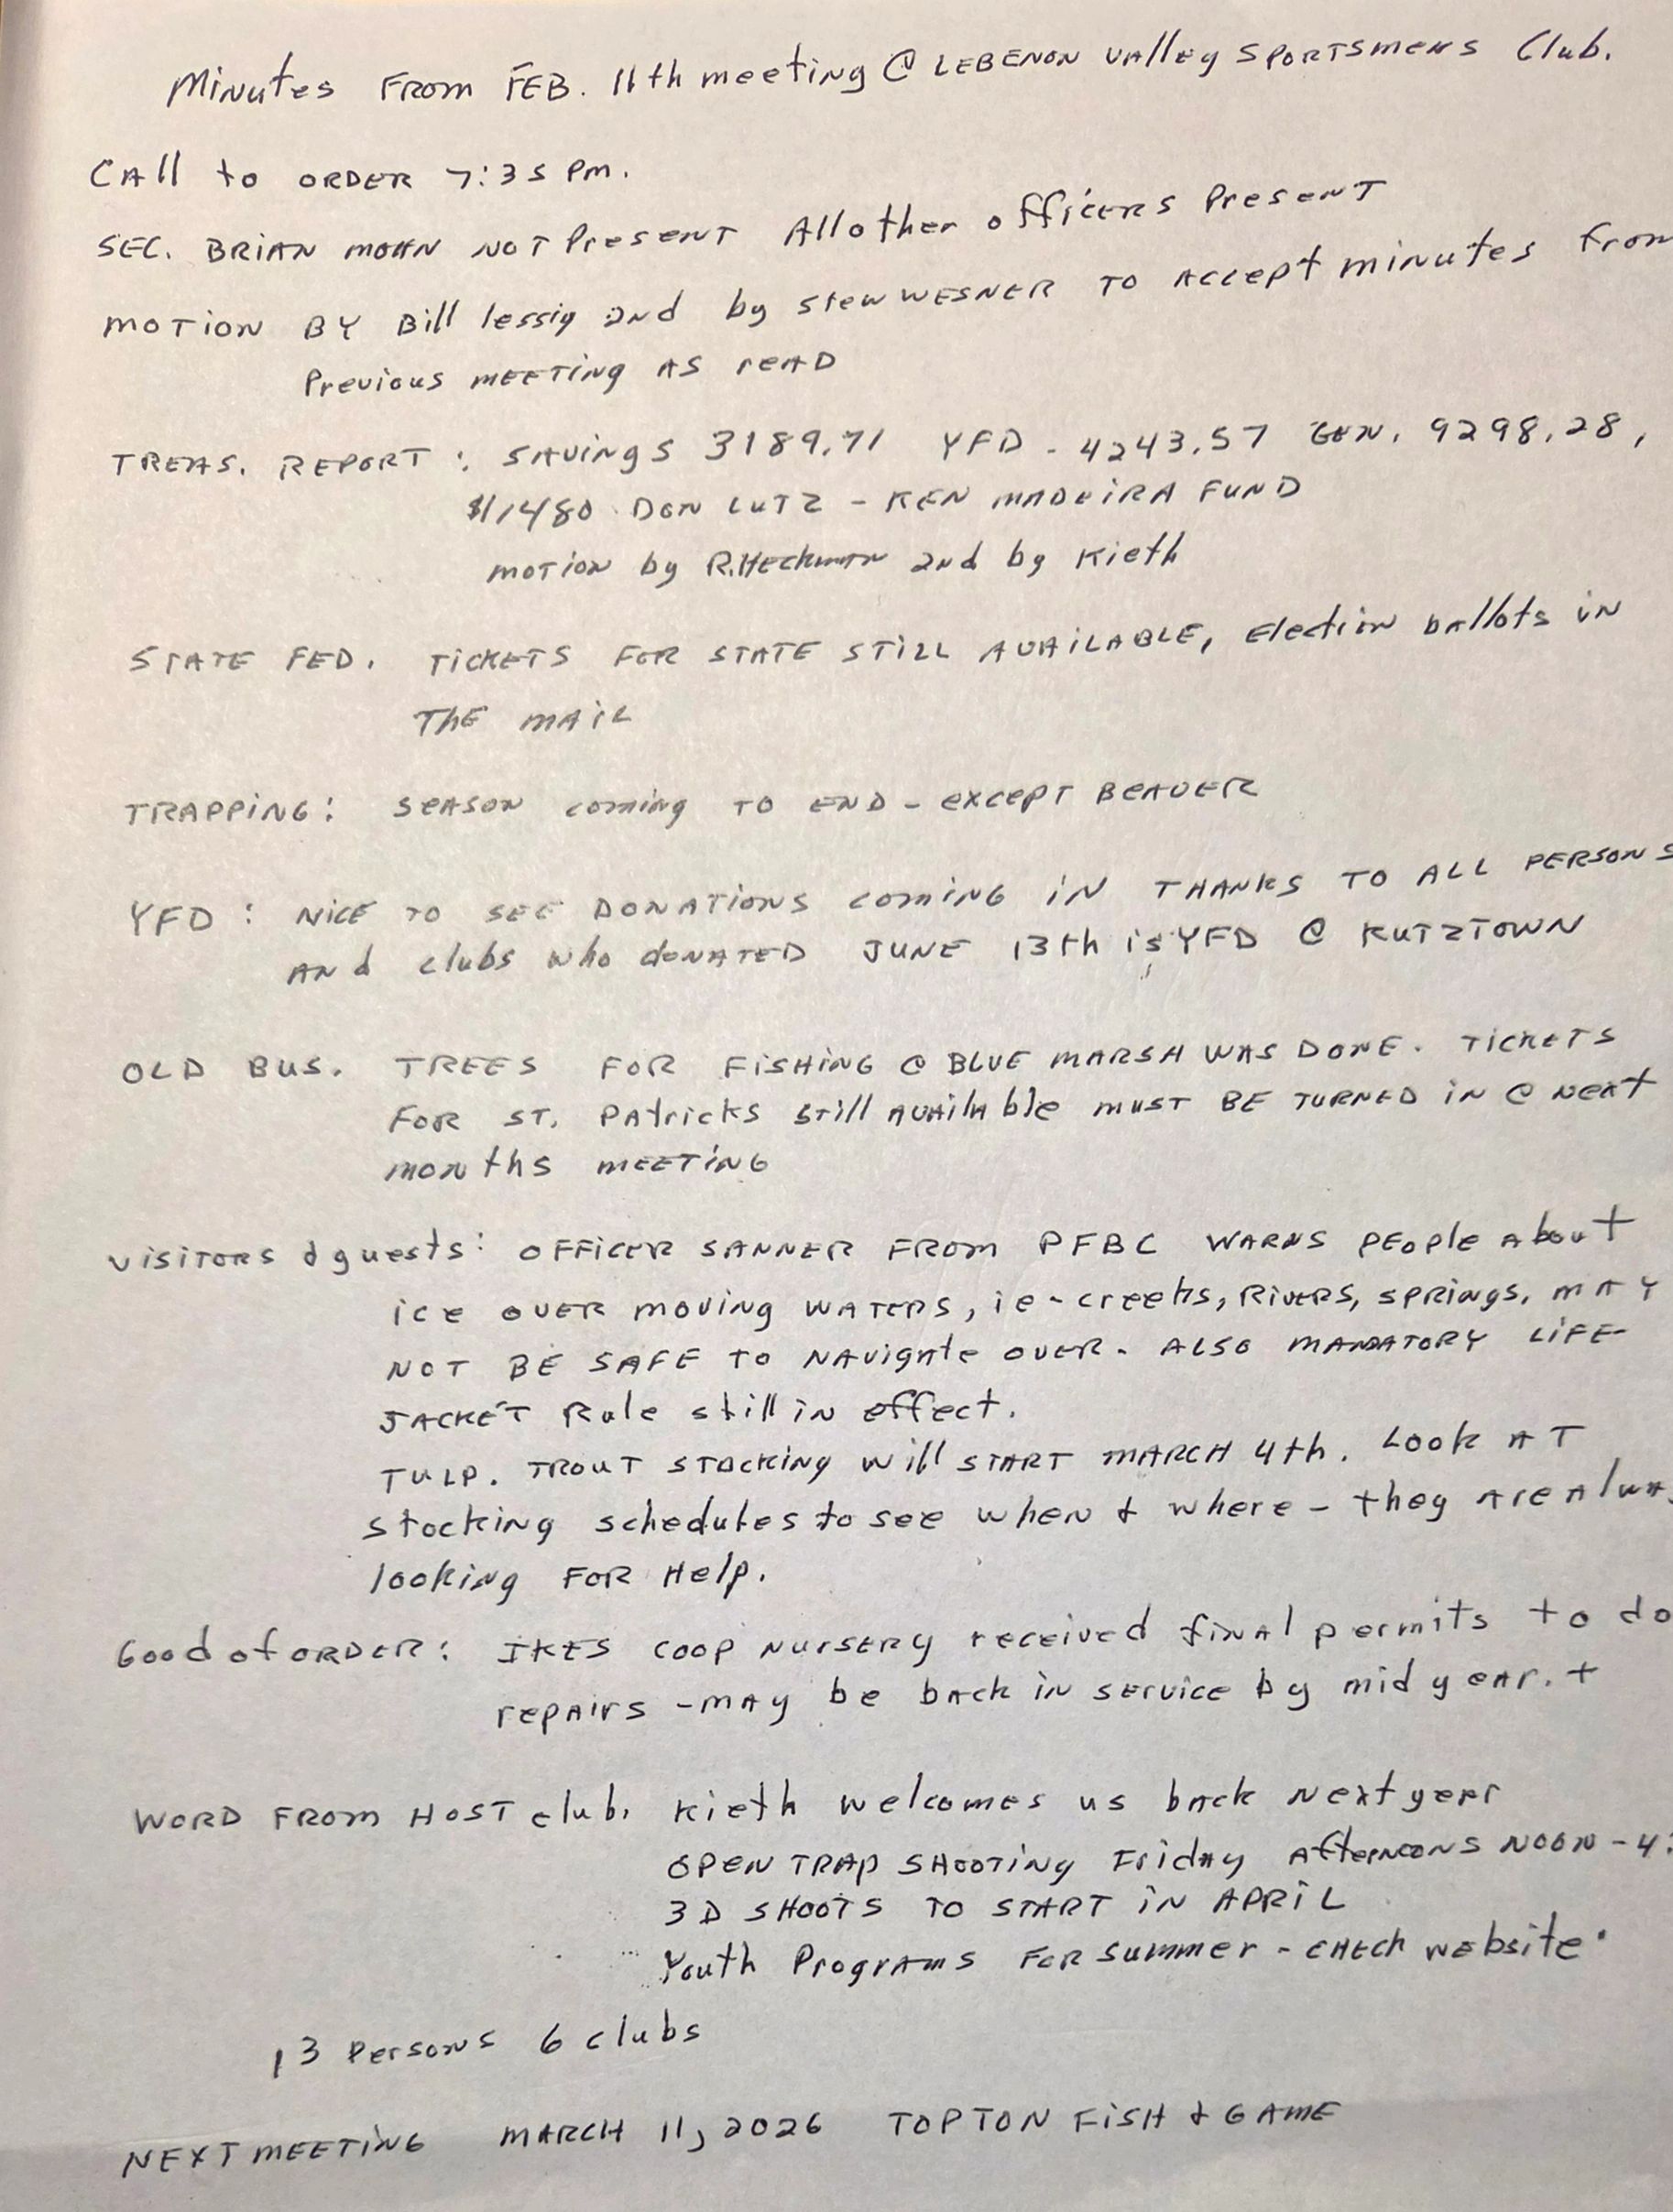 Minutes From FEB. 11th meeting @ LEBENON Valley SPORTSMENS Club.
Call to ORDER 7:35 Pm.
SEC. BRIAN MOHN NOT Present All other officers Present
MOTION BY Bill lessig 2nd by Stew WESNER TO Accept minutes from
Previous MEETING AS reAD
TREAS. REPORT : SAVINGS 3189.71 YFD - 4243.57 GEN. 9298.28,
$1480 DON LUTZ - KEN MADEIRA FUND
MOTION by R. Heckman 2nd by Kieth
STATE FED. TICKETS FOR STATE STILL AVAILABLE, Election bAllots in
THE MAIL
TRAPPING: SEASON coming TO END - except BEAVER
YFD : NICE TO SEE DONATIONS COMING IN THANKS TO ALL PERSONS
And clubs who donATED JUNE 13th is YFD @ KUTZTOWN
OLD BUS. TREES FOR FISHING @ BLUE MARSH WAS DONE. TICKETS
FOR ST. PAtricks still AVAilAble MUST BE TURNED IN @ Next
months MEETING
Visitors & guests: OFFICER SANNER FROM PFBC WARNS PEOPle About
ice over moving WATERS, ie-creeks, RIVERS, SPRINgs, MAY
NOT BE SAFE TO NAVigAte OVER. ALSO MANDATORY LIFE-
JACKET Rule still in effect.
TULP. TROUT STOCKINg will START MARCH 4th. Look AT
stocking schedules to see when & where - they Are
looking FOR Help.
Good of ORDER: IKES COOP NURSERY received finAl permits to do
repAirs - MAY be bAck in SERVICE by mid yeAr. +
WORD FROM HOST club. Kieth welcomes us bAck Next yeAr
OPEN TRAP SHOOTINg FridAy AfterNOONS NOON - 4:
3D SHOOTS TO START IN APRIL
Youth ProgrAms For Summer - CHECk website.
13 Persons 6 clubs
NEXT MEETING MARCH 11, 2026 TOPTON FISH & GAME